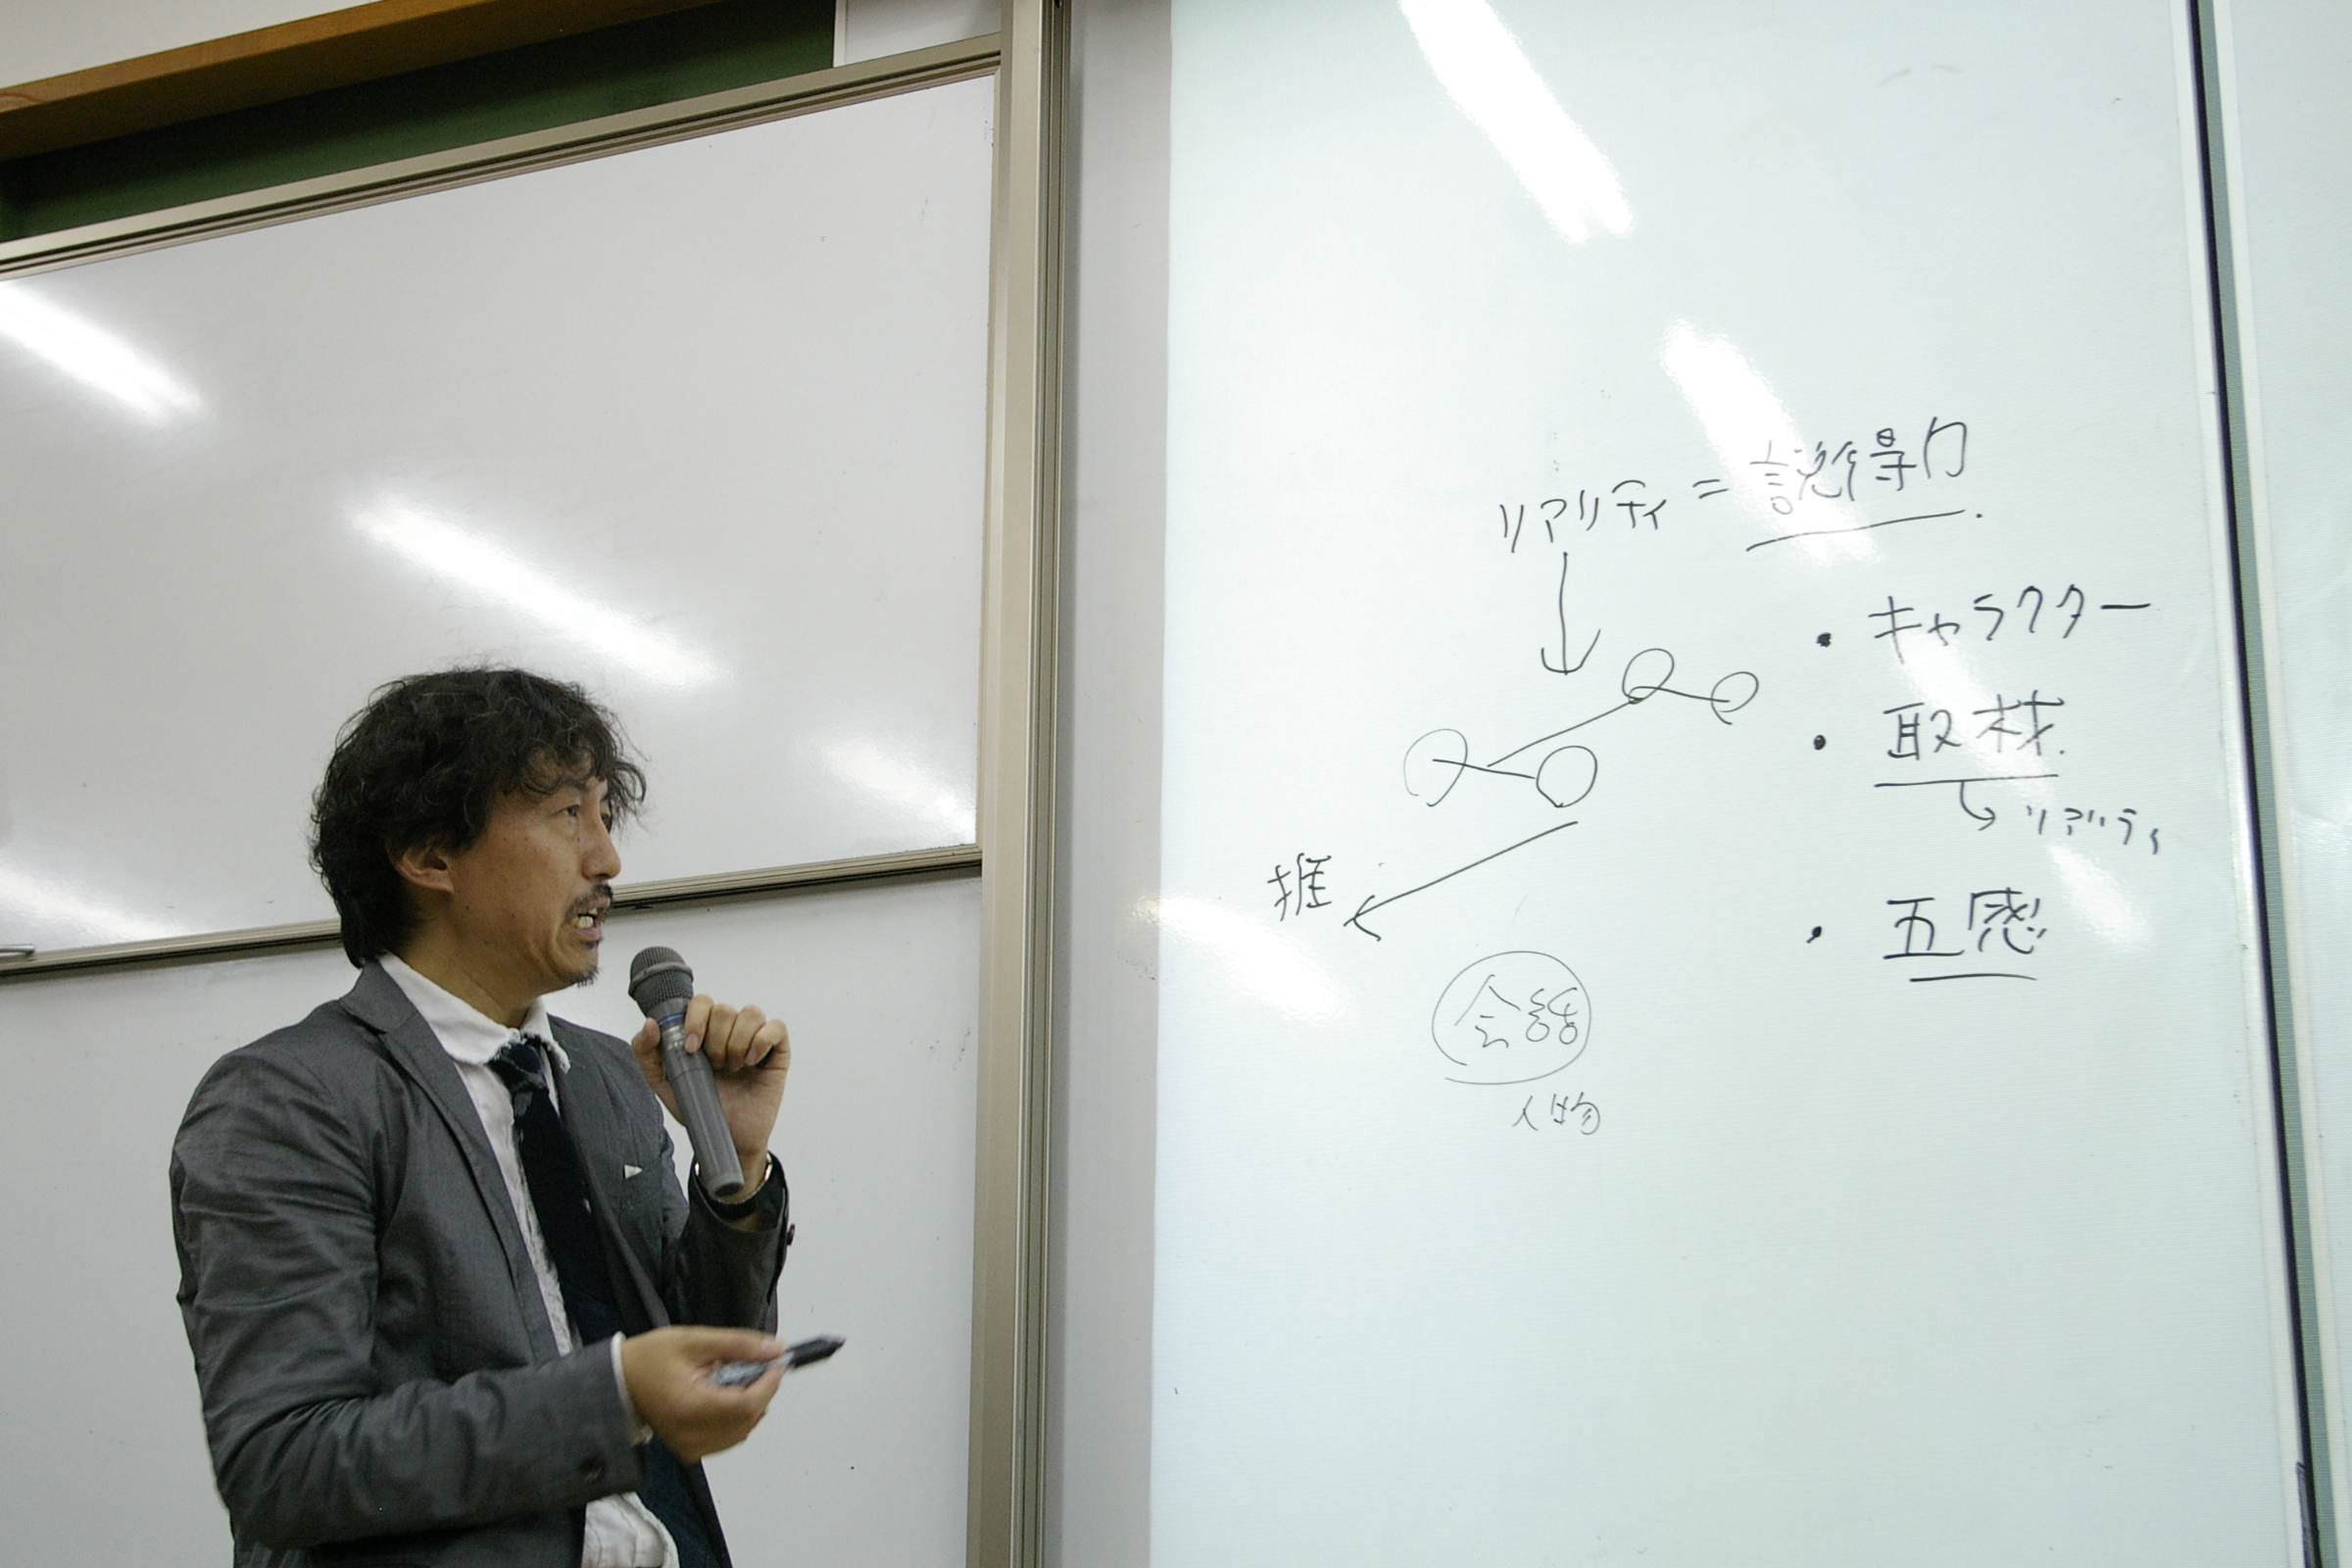 リアリティ = 説得力.
・キャラクター
・取材.
リアリティ
・五感
推
会話
人物